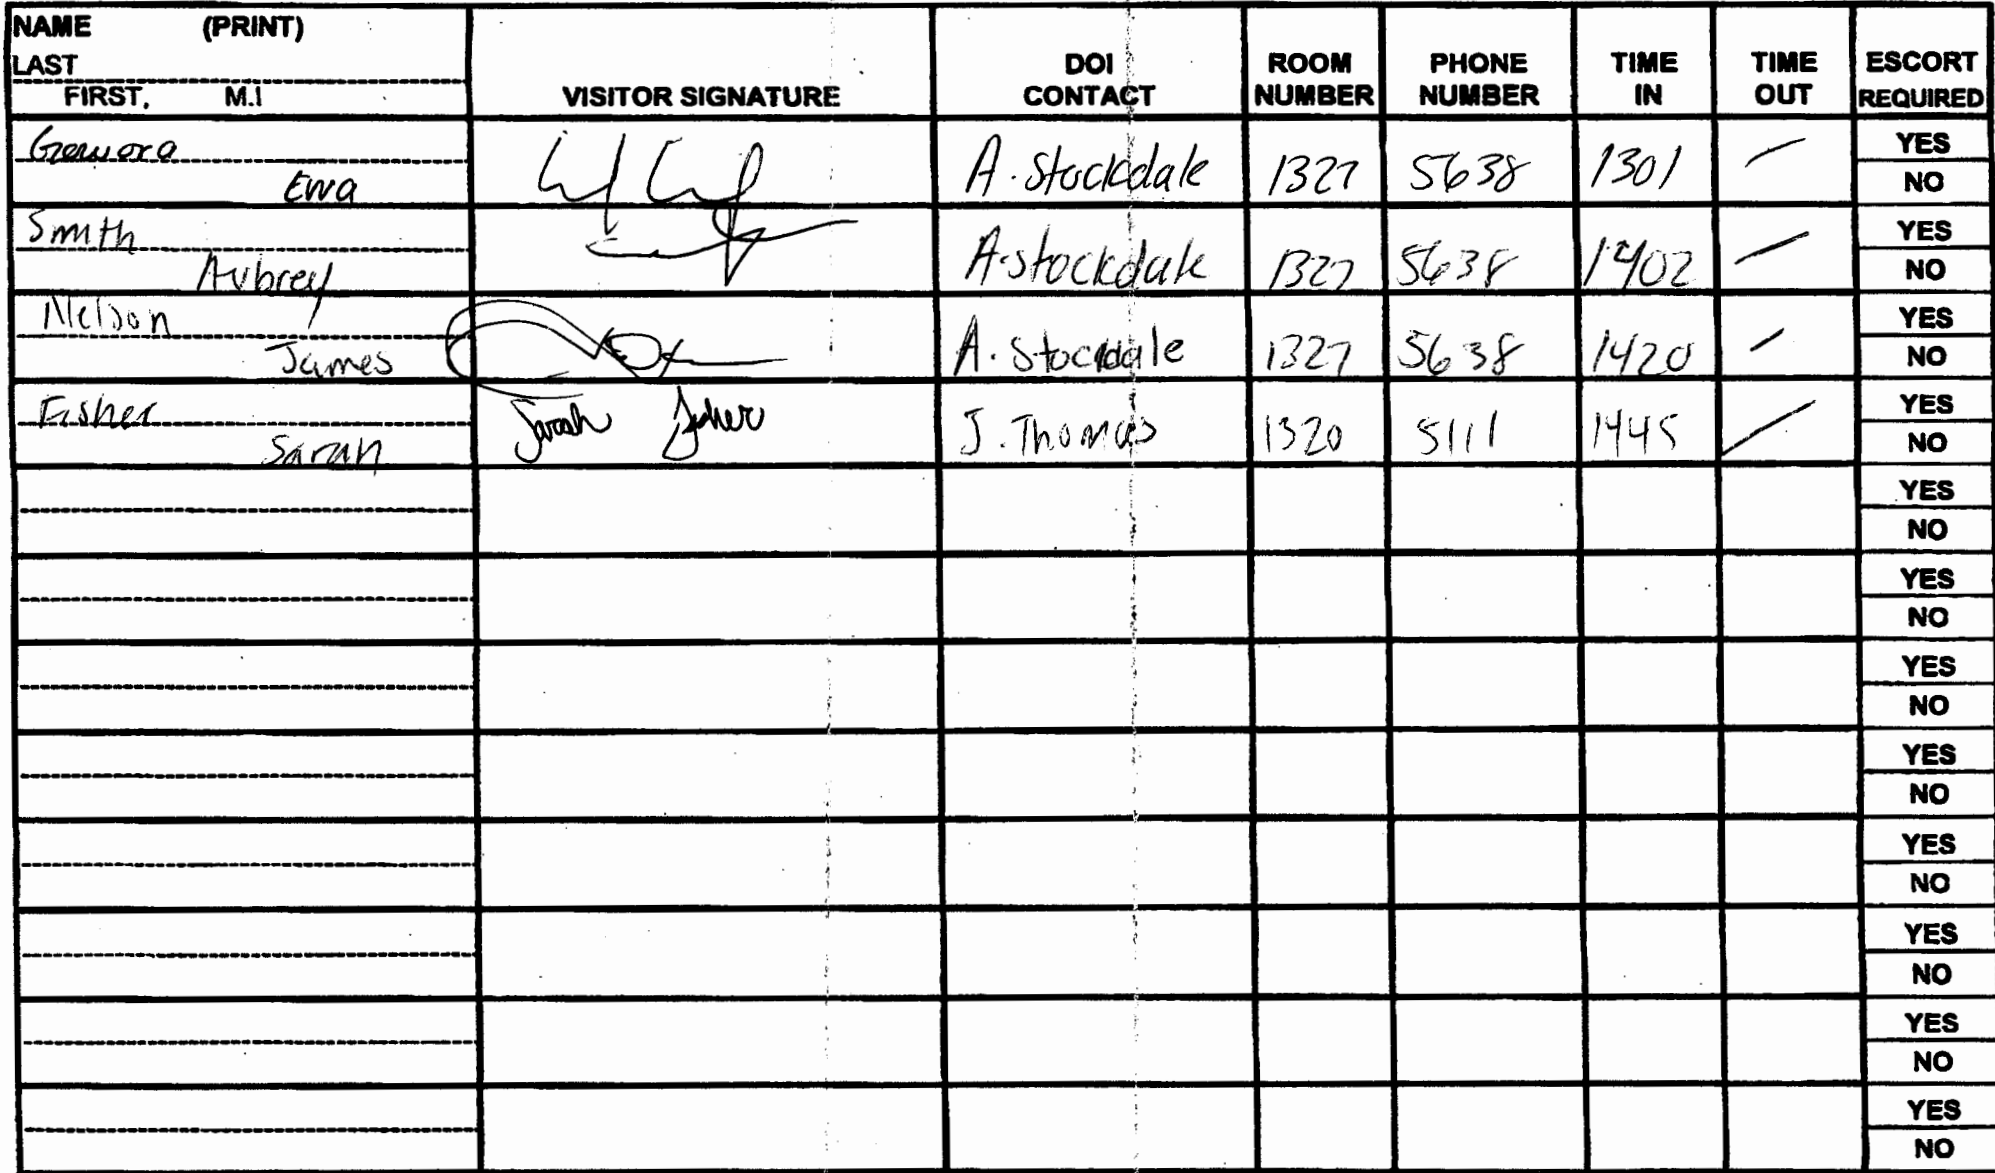 NAME (PRINT)
LAST
FIRST, M.I
VISITOR SIGNATURE
DOI CONTACT
ROOM NUMBER
PHONE NUMBER
TIME IN
TIME OUT
ESCORT REQUIRED
Ewa
A. Stockdale 1327 5638 1301 — YES NO
Smith
Aubrey
A. Stockdale 1327 5638 1402 — YES NO
Nelson
James
A. Stockdale 1327 5638 1420 — YES NO
Fisher
Sarah
Sarah Fisher
J. Thomas 1320 5111 1445 — YES NO
YES
NO
YES
NO
YES
NO
YES
NO
YES
NO
YES
NO
YES
NO
YES
NO